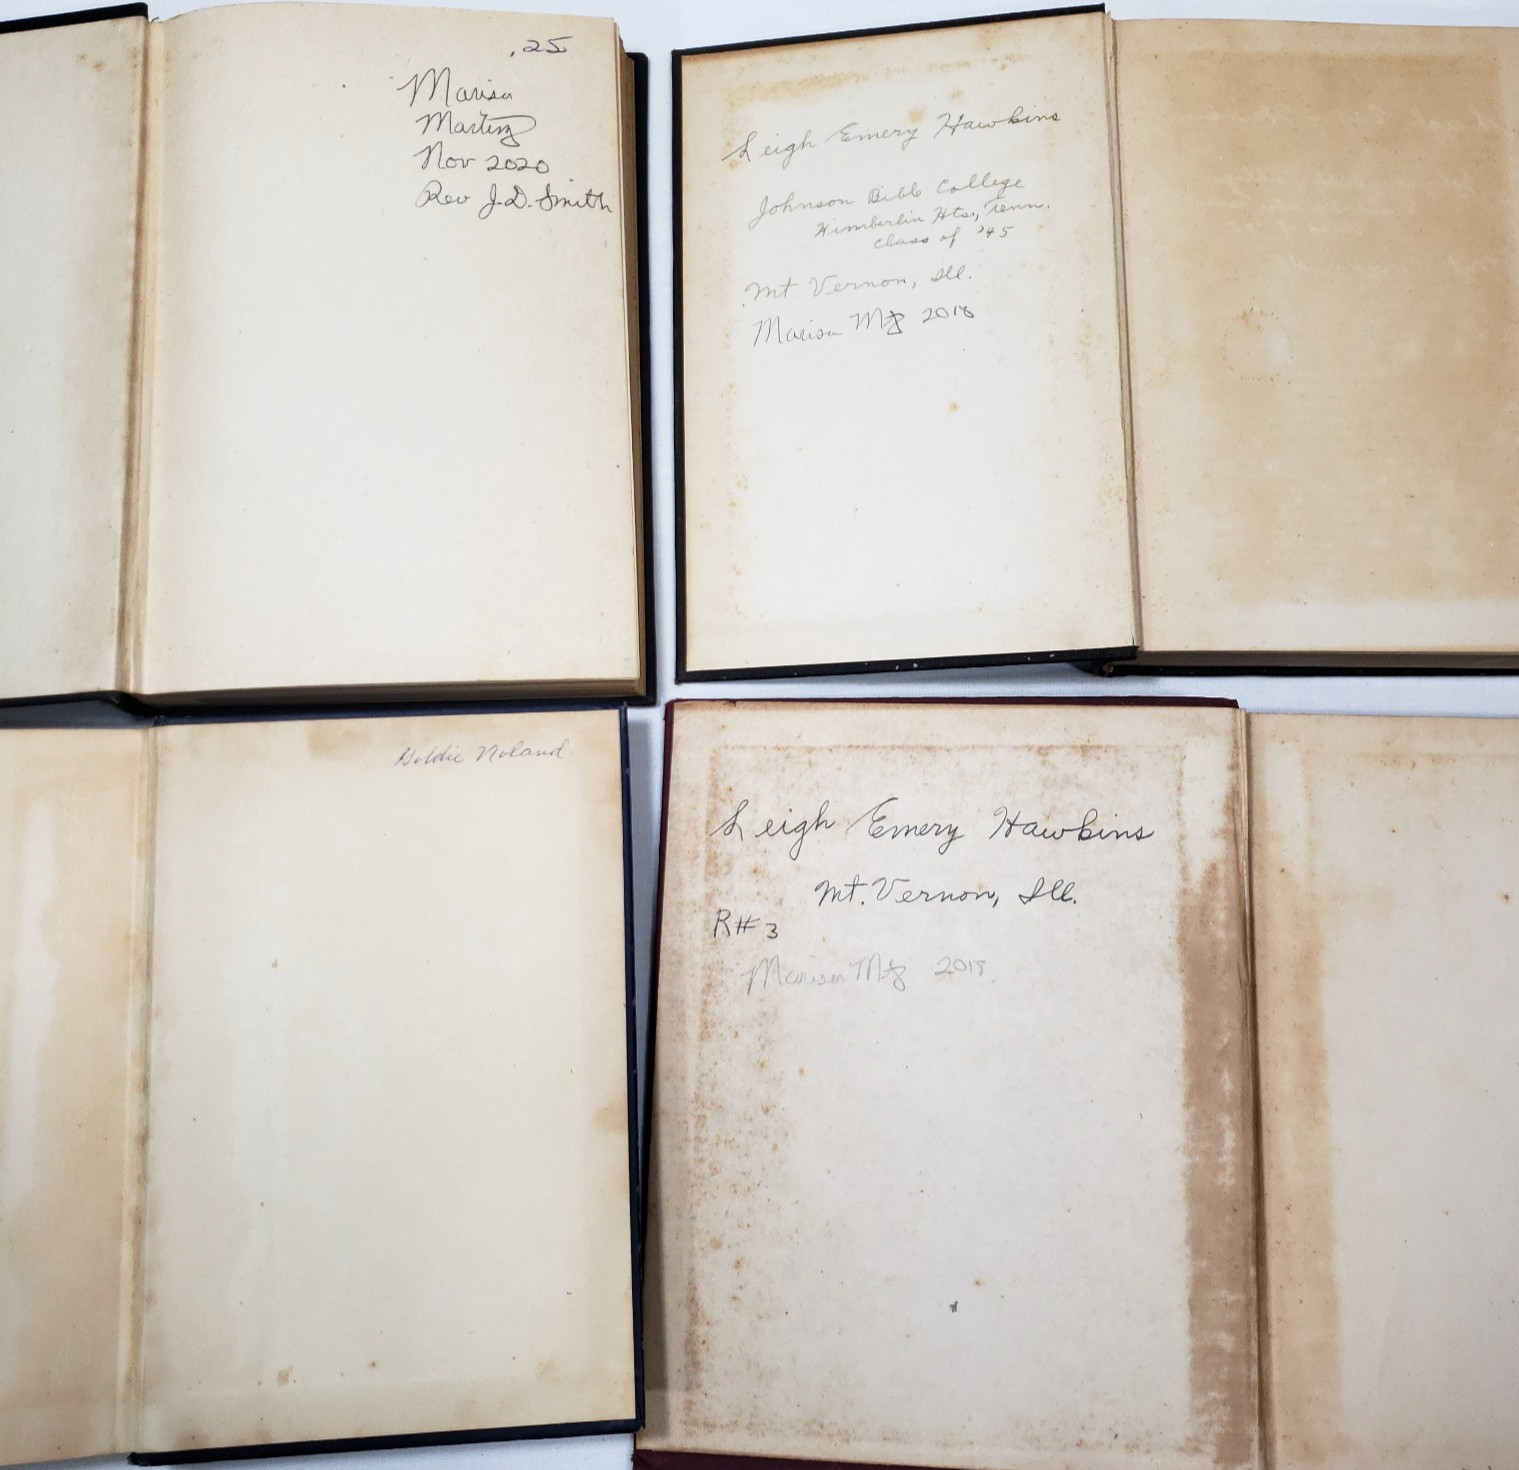 .25
Marisa
Martinz
Nov 2020
Rev J.D. Smith
Leigh Emery Hawkins
Johnson Bible College
Kimberlin Hts., Tenn.
Class of '45
Mt Vernon, Ill.
Marisa Mtz 2018
Goldie Noland
Leigh Emery Hawkins
Mt. Vernon, Ill.
R#3
Marisa Mtz 2018